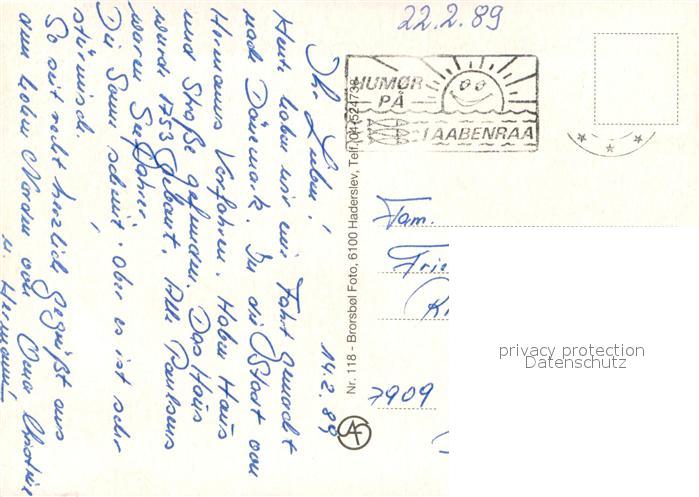 22.2.89
HUMØR
PÅ
I AABENRAA
14.2.89
Ihr Lieben!
Heute haben wir eine Fahrt gemacht
nach Dänemark. In die Stadt von
Hermanns Vorfahren. Haben Haus
und Straße gefunden. Das Haus
wurde 1753 gebaut. Alle Paulsens
waren Seefahrer.
Die Sonne scheint, aber es ist sehr
stürmisch.
So seit recht herzlich gegrüßt aus
dem hohen Norden von Oma Christine
u. Hermann
Nr. 118 - Brorsbøl Foto, 6100 Haderslev, Telf. (04)524738
Fam.
Frie
7909
privacy protection
Datenschutz